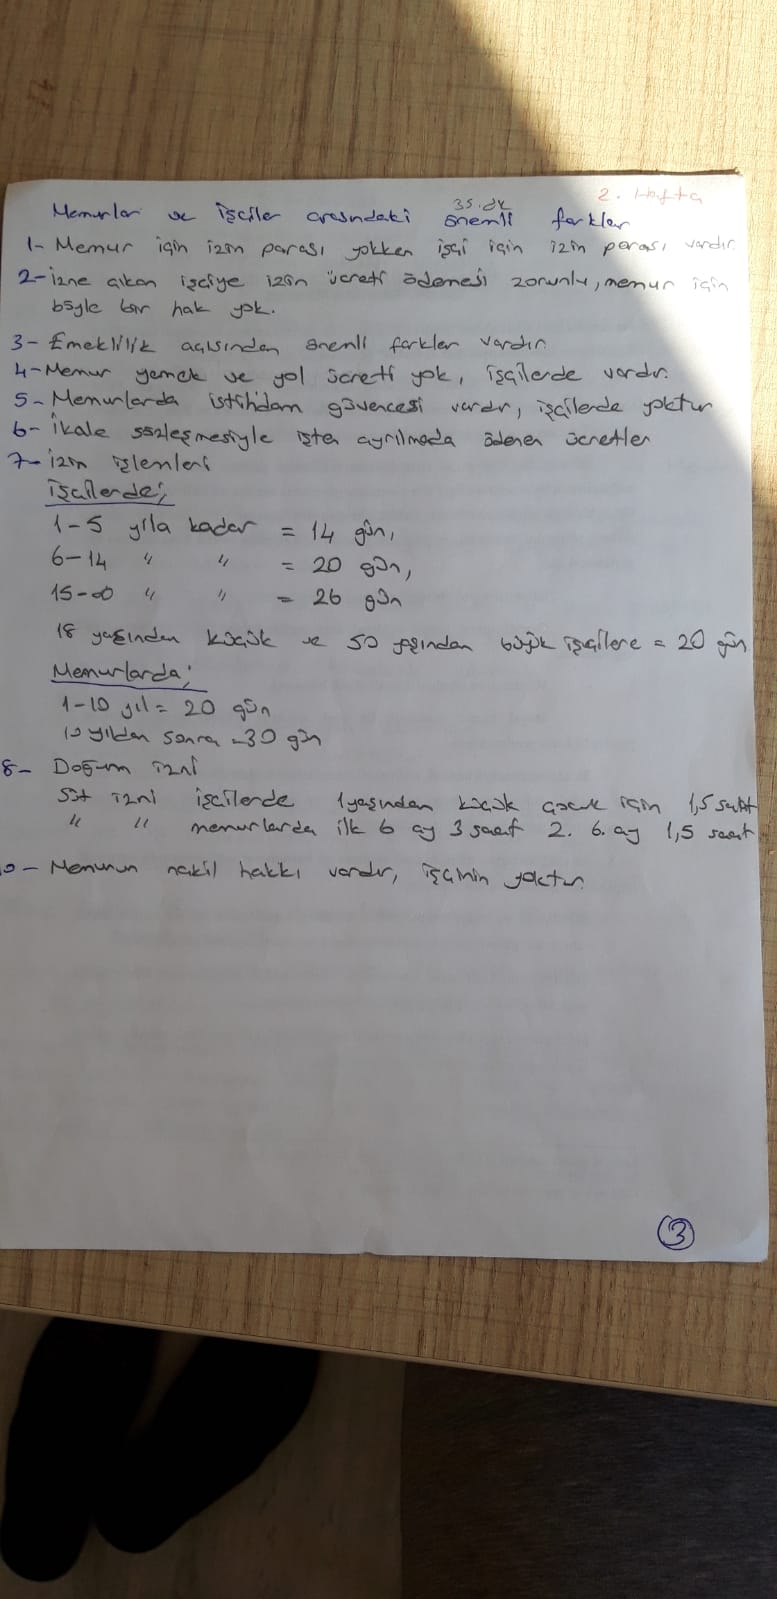 2. Hafta
35. dk
Memurlar ve işçiler arasındaki önemli farklar
1- Memur için izin parası yokken işçi için izin parası vardır.
2- İzne çıkan işçiye izin ücreti ödemesi zorunlu, memur için
böyle bir hak yok.
3- Emeklilik açısından önemli farklar vardır.
4- Memur yemek ve yol ücreti yok, işçilerde vardır.
5- Memurlarda istihdam güvencesi vardır, işçilerde yoktur
6- İkale sözleşmesiyle işten ayrılmada ödenen ücretler
7- İzin işlemleri
işçilerde;
1-5 yıla kadar = 14 gün,
6-14 " " = 20 gün,
15-∞ " " = 26 gün
18 yaşından küçük ve 50 yaşından büyük işçilere = 20 gün
Memurlarda;
1-10 yıl = 20 gün
10 yıldan sonra = 30 gün
8- Doğum izni
Süt izni işçilerde 1 yaşından küçük çocuk için 1,5 saat
" " memurlarda ilk 6 ay 3 saat 2. 6. ay 1,5 saat
- Memurun nakil hakkı vardır, işçinin yoktur.
3